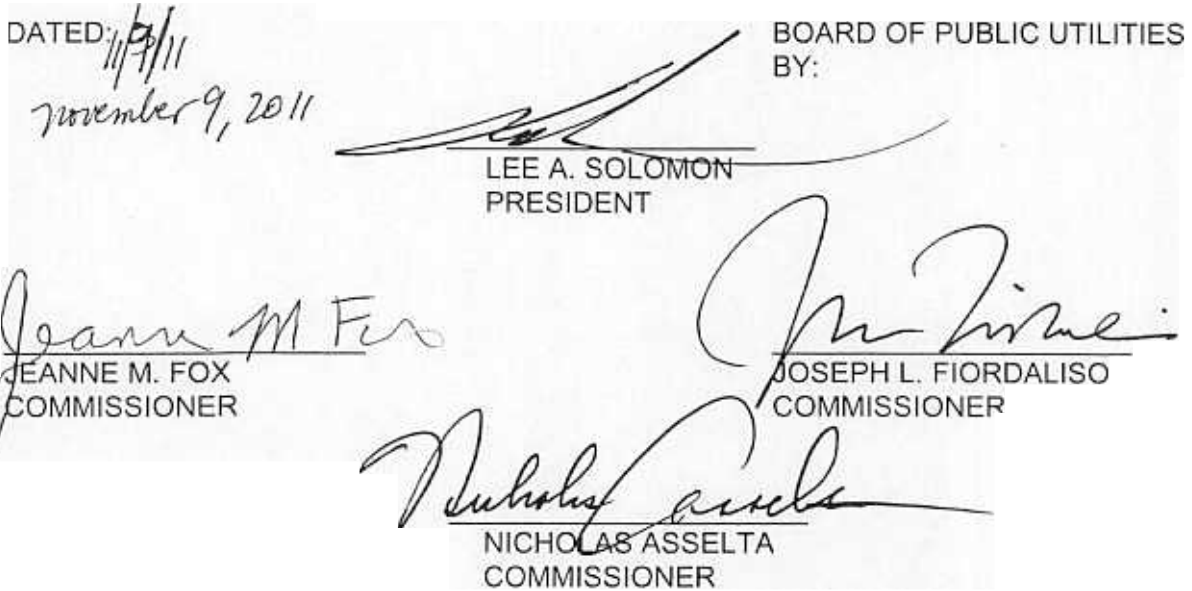 DATED: 11/9/11
november 9, 2011
BOARD OF PUBLIC UTILITIES
BY:
LEE A. SOLOMON
PRESIDENT
Jeanne M Fox
JEANNE M. FOX
COMMISSIONER
JOSEPH L. FIORDALISO
COMMISSIONER
Nicholas Asselta
NICHOLAS ASSELTA
COMMISSIONER